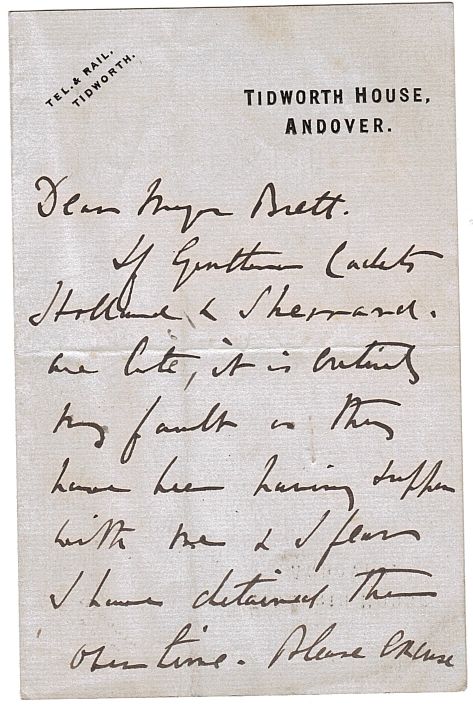 TEL. & RAIL,
TIDWORTH.
TIDWORTH HOUSE,
ANDOVER.
Dear Major Brett.
If Gentlemen Cadets
Holland & Sherrard.
are late, it is entirely
my fault as they
have been having supper
with me & I fear
I have detained them
over time. Please excuse